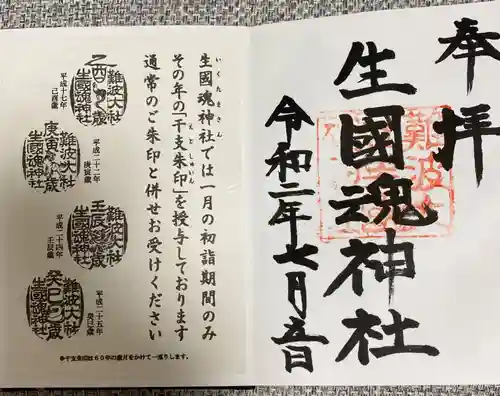 奉拝
生國魂神社
難波大社
令和二年七月五日
いくたまさん
生國魂神社では一月の初詣期間のみ
えとしゅいん
その年の「干支朱印」を授与しております
通常のご朱印と併せお受けください
難波大社
乙酉歳
生國魂神社
平成十七年
難波大社
庚寅歳
生國魂神社
平成二十二年
庚寅歳
難波大社
壬辰歳
生國魂神社
平成二十四年
壬辰歳
難波大社
癸巳歳
生國魂神社
平成二十五年
癸巳歳
※干支朱印は60年の歳月をかけて一巡りします。